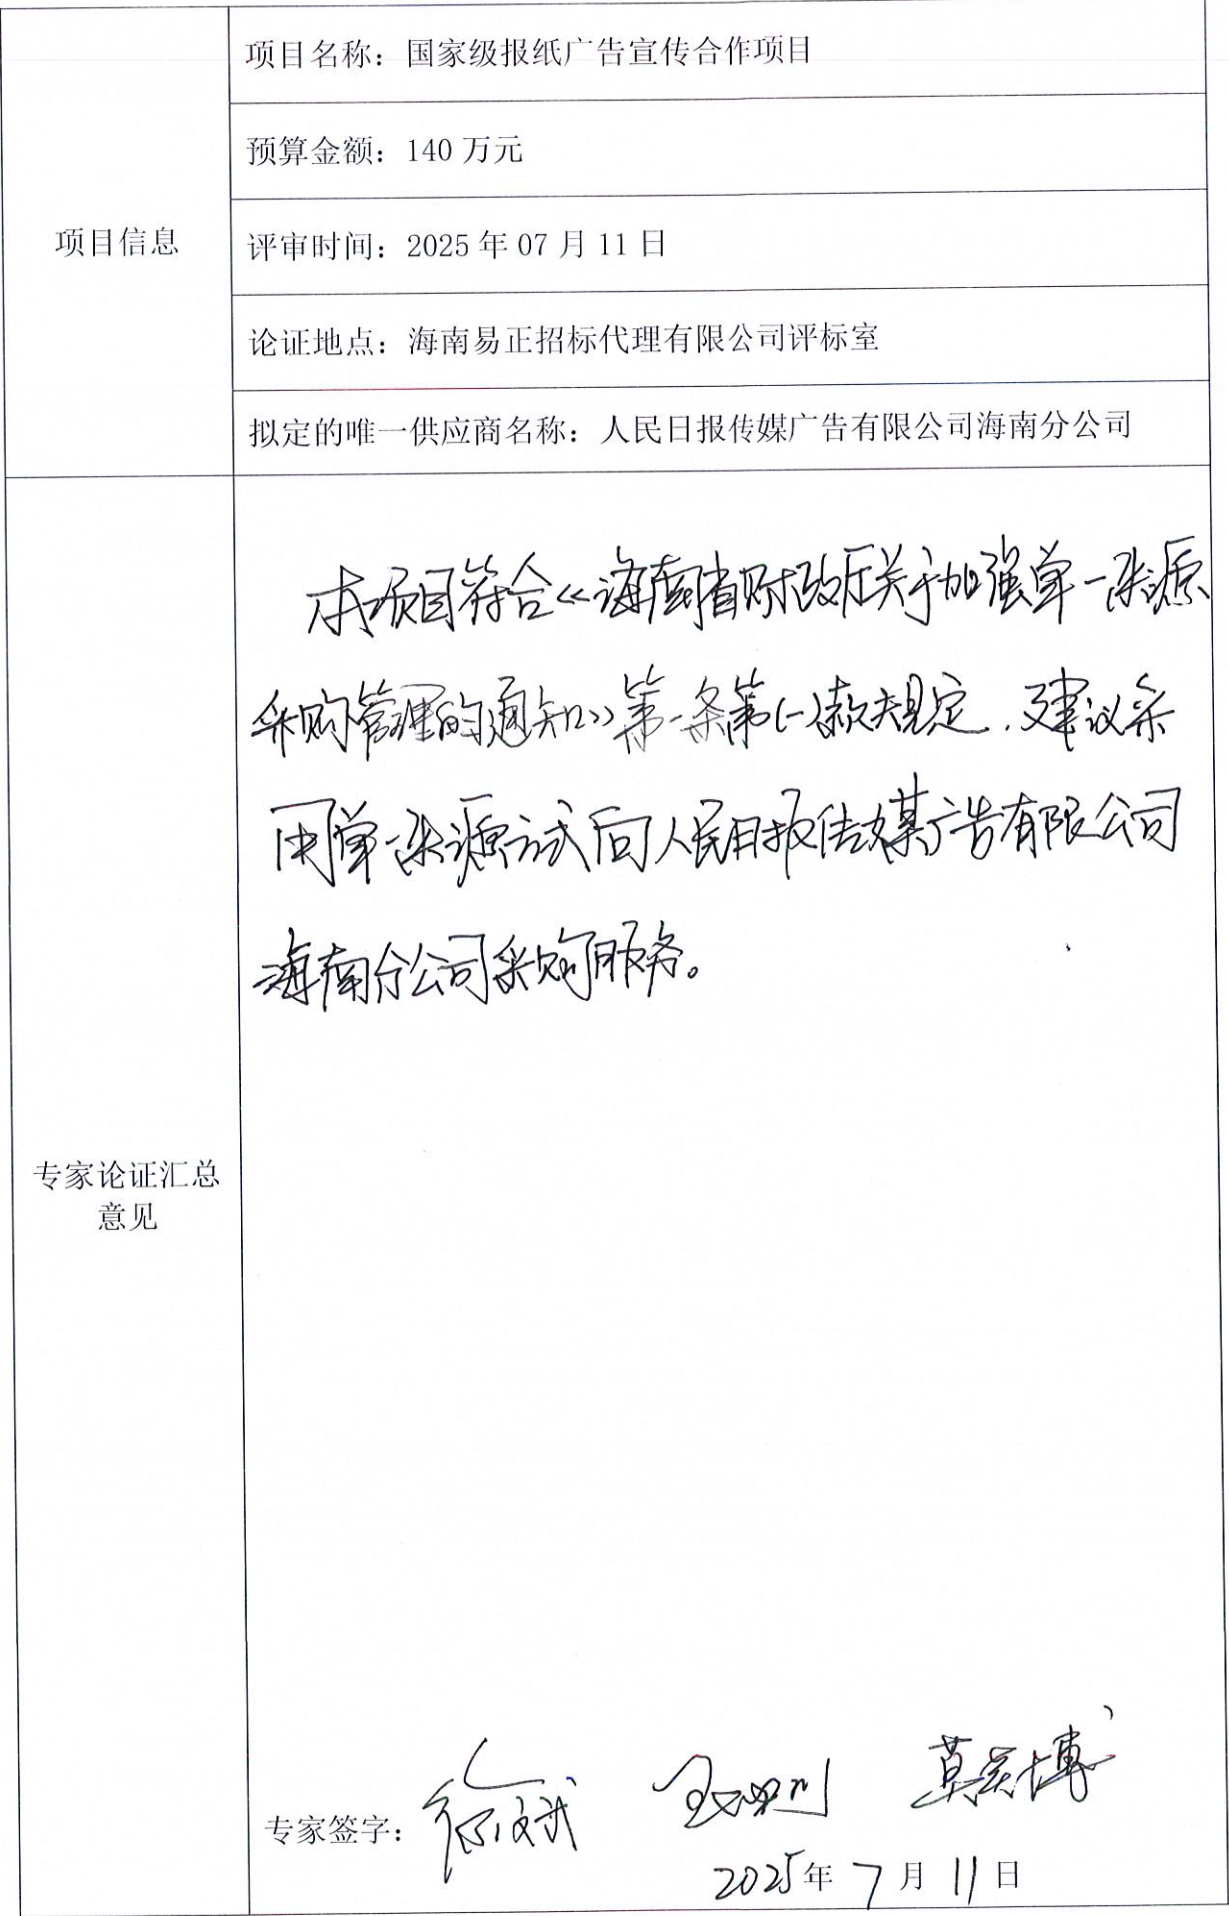 项目信息
项目名称：国家级报纸广告宣传合作项目
预算金额：140 万元
评审时间：2025 年 07 月 11 日
论证地点：海南易正招标代理有限公司评标室
拟定的唯一供应商名称：人民日报传媒广告有限公司海南分公司
专家论证汇总
意见
本项目符合《海南省财政厅关于加强单一来源
采购管理的通知》第一条第(一)款规定，建议采
用单一来源方式向人民日报传媒广告有限公司
海南分公司采购服务。
专家签字：
2025年 7 月 11 日